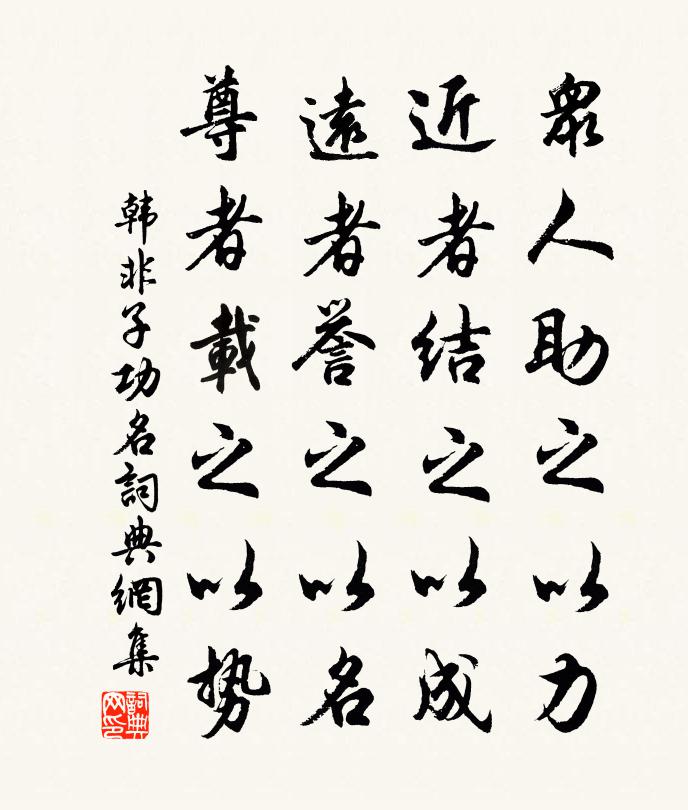 眾人助之以力
近者結之以成
遠者譽之以名
尊者載之以勢
韩非子功名詞典網集
詞典
网印